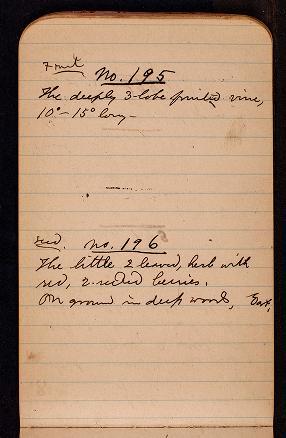 Fruit
No. 195
The deeply 3-lobe fruited vine,
10°-15° long -
red. No. 196
The little 2 leaved, herb with
red, 2-seeded berries.
On ground in deep woods, East,